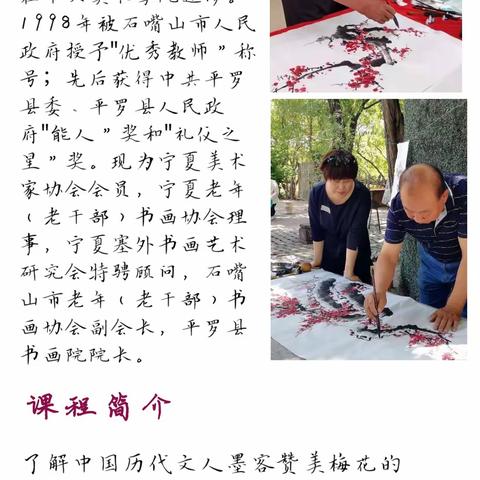 1998年被石嘴山市人民
政府授予"优秀教师"称
号；先后获得中共平罗
县委、平罗县人民政
府"能人"奖和"礼仪之
星"奖。现为宁夏美术
家协会会员，宁夏老年
（老干部）书画协会理
事，宁夏塞外书画艺术
研究会特聘顾问，石嘴
山市老年（老干部）书
画协会副会长，平罗县
书画院院长。
课程简介
了解中国历代文人墨客赞美梅花的